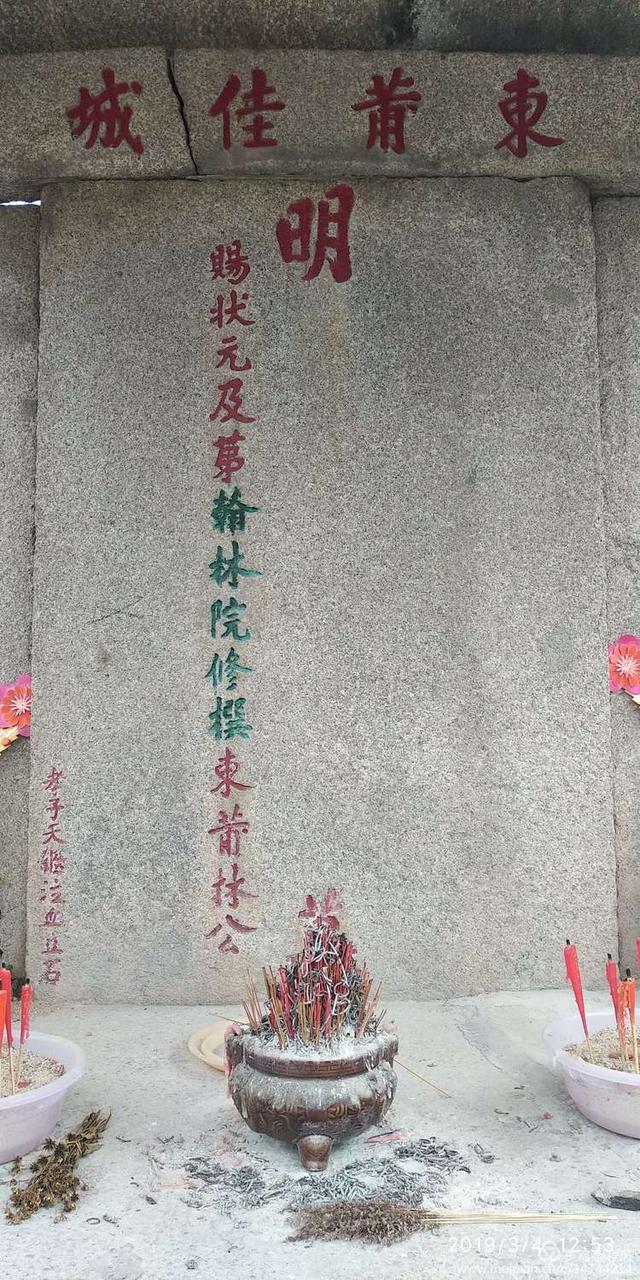 東莆佳城
明
賜状元及苐翰林院修撰東莆林公
孝子天繼泣血立石
2019/3/4 12:53